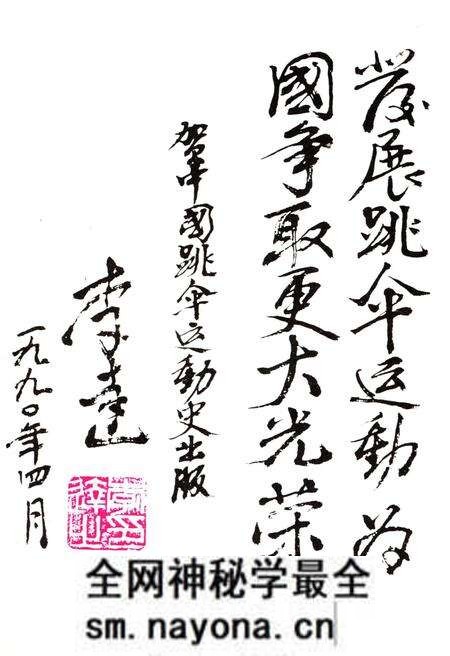 发展跳伞运动为
國争取更大光荣
贺中國跳伞运動史出版
李达
一九九〇年四月
全网神秘学最全
sm.nayona.cn